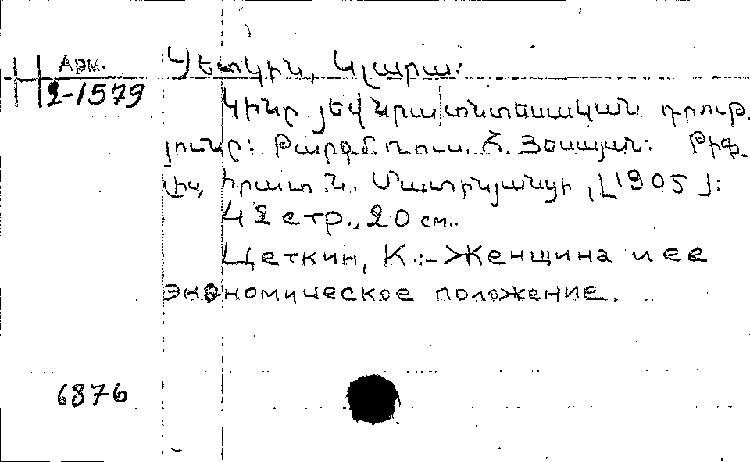 Арм. Ցետկին, Կլարա:
2-1579
Կինը յեվ նրա տնտեսական դրութ.
յունը: Թարգմ. ռուս. Հ. Յեսայան: Թիֆ.
լիս, հրատ. Ն. Մատինյանցի, [1905]:
42 стр., 20 см.
Цеткин, К. :- Женщина и ее
экономическое положение.
6876